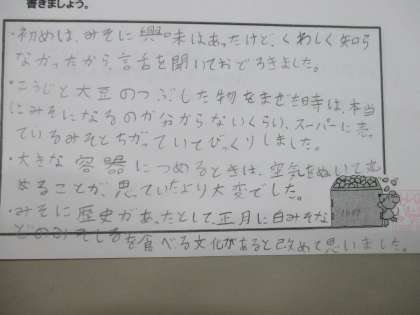 書きましょう。
・初めは、みそに興味はあったけど、くわしく知ら
なかったから、言舌を聞いておどろきました。
・こうじと大豆のつぶした物をまぜる時は、本当
にみそになるのか分からないくらい、スーパーに売っ
ているみそとちがっていてびっくりしました。
・大きな容器につめるときは、空気をぬいてつ
めることが、思っていたより大変でした。
・みそに歴史があったとして、正月に白みそな
どのみそしるを食べる文化があると改めて思いました。